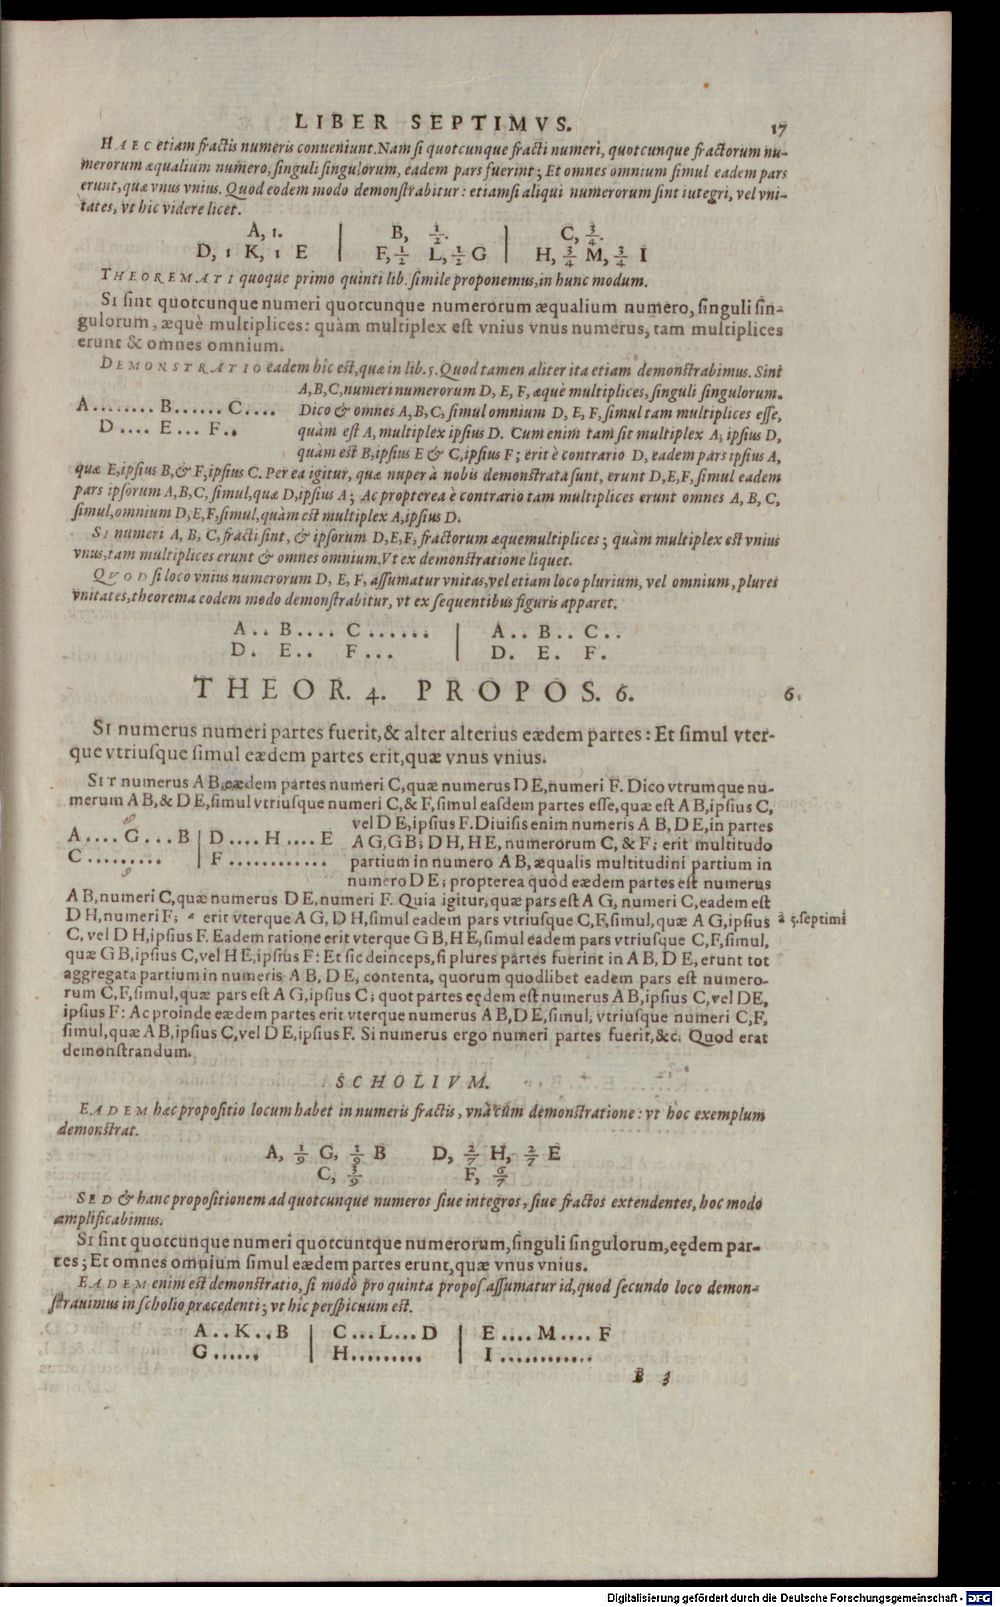 LIBER SEPTIMVS. 17
HAEC etiam fractis numeris conueniunt. Nam si quotcunque fracti numeri, quotcunque fractorum nu-
merorum æqualium numero, singuli singulorum, eadem pars fuerint; Et omnes omnium simul eadem pars
erunt, quæ vnus vnius. Quod eodem modo demonstrabitur: etiamsi aliqui numerorum sint iutegri, vel vni-
tates, vt hic videre licet.
A, 1. | B, 1/2. | C, 3/4.
D, 1 K, 1 E | F, 1/2 L, 1/2 G | H, 3/4 M, 3/4 I
THEOREMATI quoque primo quinti lib. simile proponemus, in hunc modum.
SI sint quotcunque numeri quotcunque numerorum æqualium numero, singuli sin-
gulorum, æquè multiplices: quàm multiplex est vnius vnus numerus, tam multiplices
erunt & omnes omnium.
DEMONSTRATIO eadem hîc est, quæ in lib. 5. Quod tamen aliter ita etiam demonstrabimus. Sint
A, B, C, numeri numerorum D, E, F, æquè multiplices, singuli singulorum.
A........ B...... C.... Dico & omnes A, B, C, simul omnium D, E, F, simul tam multiplices esse,
D.... E... F.. quàm est A, multiplex ipsius D. Cum enim tam sit multiplex A, ipsius D,
quàm est B, ipsius E & C, ipsius F; erit è contrario D, eadem pars ipsius A,
quæ E, ipsius B, & F, ipsius C. Per ea igitur, quæ nuper à nobis demonstrata sunt, erunt D, E, F, simul eadem
pars ipsorum A, B, C, simul, quæ D, ipsius A; Ac propterea è contrario tam multiplices erunt omnes A, B, C,
simul, omnium D, E, F, simul, quàm est multiplex A, ipsius D.
SI numeri A, B, C, fracti sint, & ipsorum D, E, F, fractorum æquemultiplices; quàm multiplex est vnius
vnus, tam multiplices erunt & omnes omnium. Vt ex demonstratione liquet.
QVOD si loco vnius numerorum D, E, F, assumatur vnitas, vel etiam loco plurium, vel omnium, plures
vnitates, theorema eodem modo demonstrabitur, vt ex sequentibus figuris apparet.
A.. B.... C...... | A.. B.. C..
D. E.. F... | D. E. F.
THEOR. 4. PROPOS. 6. 6.
SI numerus numeri partes fuerit, & alter alterius eædem partes: Et simul vter-
que vtriusque simul eædem partes erit, quæ vnus vnius.
SIT numerus A B, eædem partes numeri C, quæ numerus D E, numeri F. Dico vtrumque nu-
merum A B, & D E, simul vtriusque numeri C, & F, simul easdem partes esse, quæ est A B, ipsius C,
vel D E, ipsius F. Diuisis enim numeris A B, D E, in partes
A....G...B | D....H....E A G, G B; D H, H E, numerorum C, & F; erit multitudo
C......... | F............ partium in numero A B, æqualis multitudini partium in
numero D E; propterea quod eædem partes est numerus
A B, numeri C, quæ numerus D E, numeri F. Quia igitur, quæ pars est A G, numeri C, eadem est
D H, numeri F; a erit vterque A G, D H, simul eadem pars vtriusque C, F, simul, quæ A G, ipsius a 5. septimi
C, vel D H, ipsius F. Eadem ratione erit vterque G B, H E, simul eadem pars vtriusque C, F, simul,
quæ G B, ipsius C, vel H E, ipsius F: Et sic deinceps, si plures partes fuerint in A B, D E, erunt tot
aggregata partium in numeris A B, D E, contenta, quorum quodlibet eadem pars est numero-
rum C, F, simul, quæ pars est A G, ipsius C; quot partes eędem est numerus A B, ipsius C, vel D E,
ipsius F: Ac proinde eædem partes erit vterque numerus A B, D E, simul, vtriusque numeri C, F,
simul, quæ A B, ipsius C, vel D E, ipsius F. Si numerus ergo numeri partes fuerit, &c. Quod erat
demonstrandum.
SCHOLIVM.
EADEM hæc propositio locum habet in numeris fractis, vnà cum demonstratione: vt hoc exemplum
demonstrat.
A, 1/9 G, 1/9 B D, 2/7 H, 2/7 E
C, 3/9 F, 6/7
SED & hanc propositionem ad quotcunque numeros siue integros, siue fractos extendentes, hoc modo
amplificabimus.
SI sint quotcunque numeri quotcuntque numerorum, singuli singulorum, eędem par-
tes; Et omnes omnium simul eædem partes erunt, quæ vnus vnius.
EADEM enim est demonstratio, si modò pro quinta propos. assumatur id, quod secundo loco demon-
strauimus in scholio præcedenti; vt hic perspicuum est.
A..K..B | C...L...D | E....M....F
G...... | H......... | I............
B 3
Digitalisierung gefördert durch die Deutsche Forschungsgemeinschaft - DFG